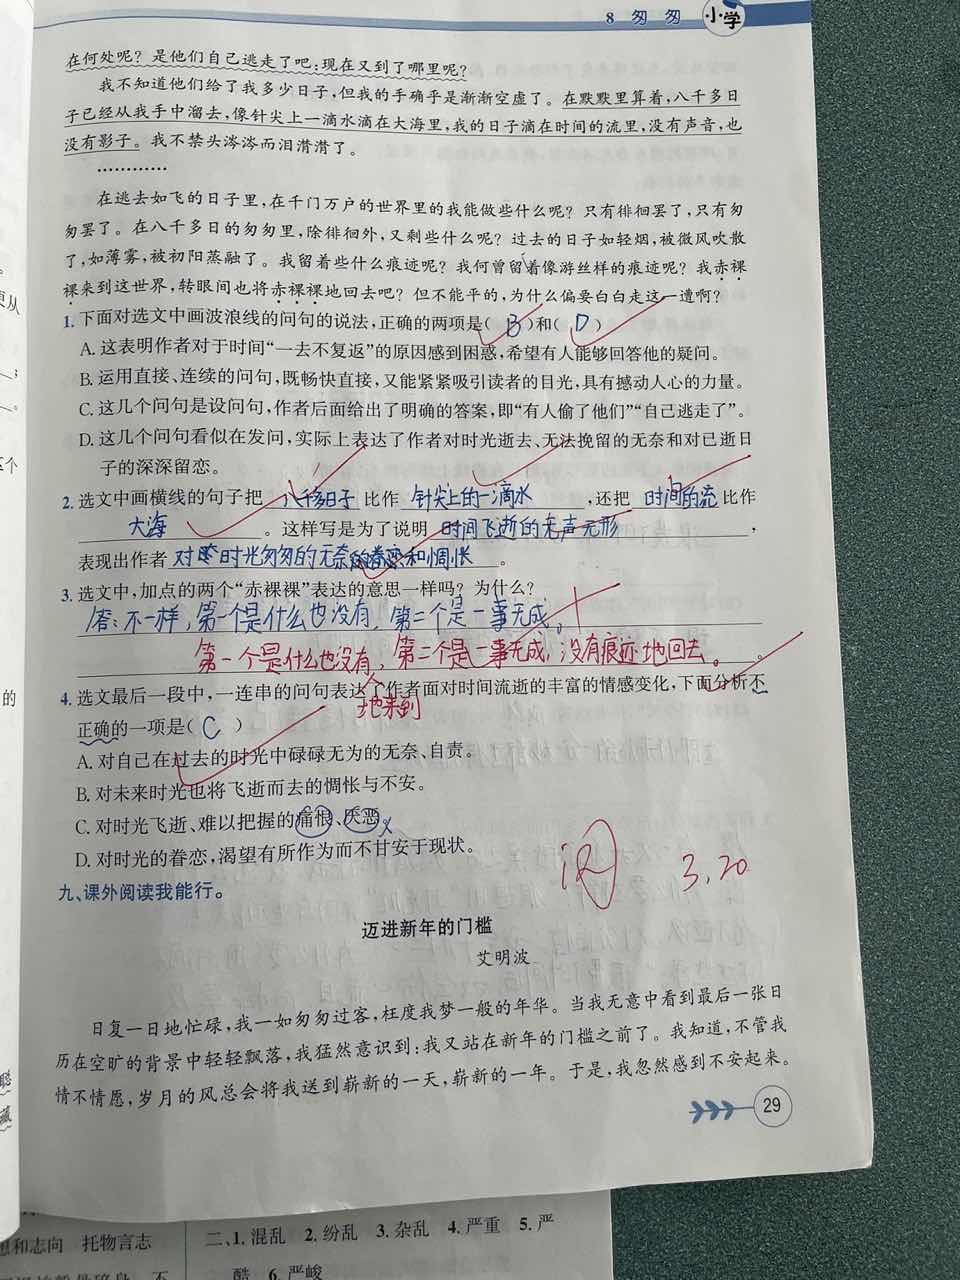 8 匆 匆 小学
在何处呢？是他们自己逃走了吧：现在又到了哪里呢？
我不知道他们给了我多少日子，但我的手确乎是渐渐空虚了。在默默里算着，八千多日
子已经从我手中溜去，像针尖上一滴水滴在大海里，我的日子滴在时间的流里，没有声音，也
没有影子。我不禁头涔涔而泪潸潸了。
…………
在逃去如飞的日子里，在千门万户的世界里的我能做些什么呢？只有徘徊罢了，只有匆
匆罢了。在八千多日的匆匆里，除徘徊外，又剩些什么呢？过去的日子如轻烟，被微风吹散
了，如薄雾，被初阳蒸融了。我留着些什么痕迹呢？我何曾留着像游丝样的痕迹呢？我赤裸
裸来到这世界，转眼间也将赤裸裸地回去吧？但不能平的，为什么偏要白白走这一遭啊？
1. 下面对选文中画波浪线的问句的说法，正确的两项是（ B ）和（ D ）
A. 这表明作者对于时间“一去不复返”的原因感到困惑，希望有人能够回答他的疑问。
B. 运用直接、连续的问句，既畅快直接，又能紧紧吸引读者的目光，具有撼动人心的力量。
C. 这几个问句是设问句，作者后面给出了明确的答案，即“有人偷了他们”“自己逃走了”。
D. 这几个问句看似在发问，实际上表达了作者对时光逝去、无法挽留的无奈和对已逝日
子的深深留恋。
2. 选文中画横线的句子把 八千多日子 比作 针尖上的一滴水 ，还把 时间的流 比作
大海 。这样写是为了说明 时间飞逝的无声无形 ，
表现出作者 对时光匆匆的无奈的眷恋和惆怅 。
3. 选文中，加点的两个“赤裸裸”表达的意思一样吗？为什么？
答：不一样，第一个是什么也没有，第二个是一事无成。
第一个是什么也没有，第二个是一事无成，没有痕迹地回去。 。
地来到
4. 选文最后一段中，一连串的问句表达了作者面对时间流逝的丰富的情感变化，下面分析不
正确的一项是（ C ）
A. 对自己在过去的时光中碌碌无为的无奈、自责。
B. 对未来时光也将飞逝而去的惆怅与不安。
C. 对时光飞逝、难以把握的痛恨、厌恶
D. 对时光的眷恋，渴望有所作为而不甘安于现状。
3.20
九、课外阅读我能行。
迈进新年的门槛
艾明波
日复一日地忙碌，我一如匆匆过客，枉度我梦一般的年华。当我无意中看到最后一张日
历在空旷的背景中轻轻飘落，我猛然意识到：我又站在新年的门槛之前了。我知道，不管我
情不情愿，岁月的风总会将我送到崭新的一天，崭新的一年。于是，我忽然感到不安起来。
29
和志向 托物言志
二、1. 混乱 2. 纷乱 3. 杂乱 4. 严重 5. 严
酷 6. 严峻